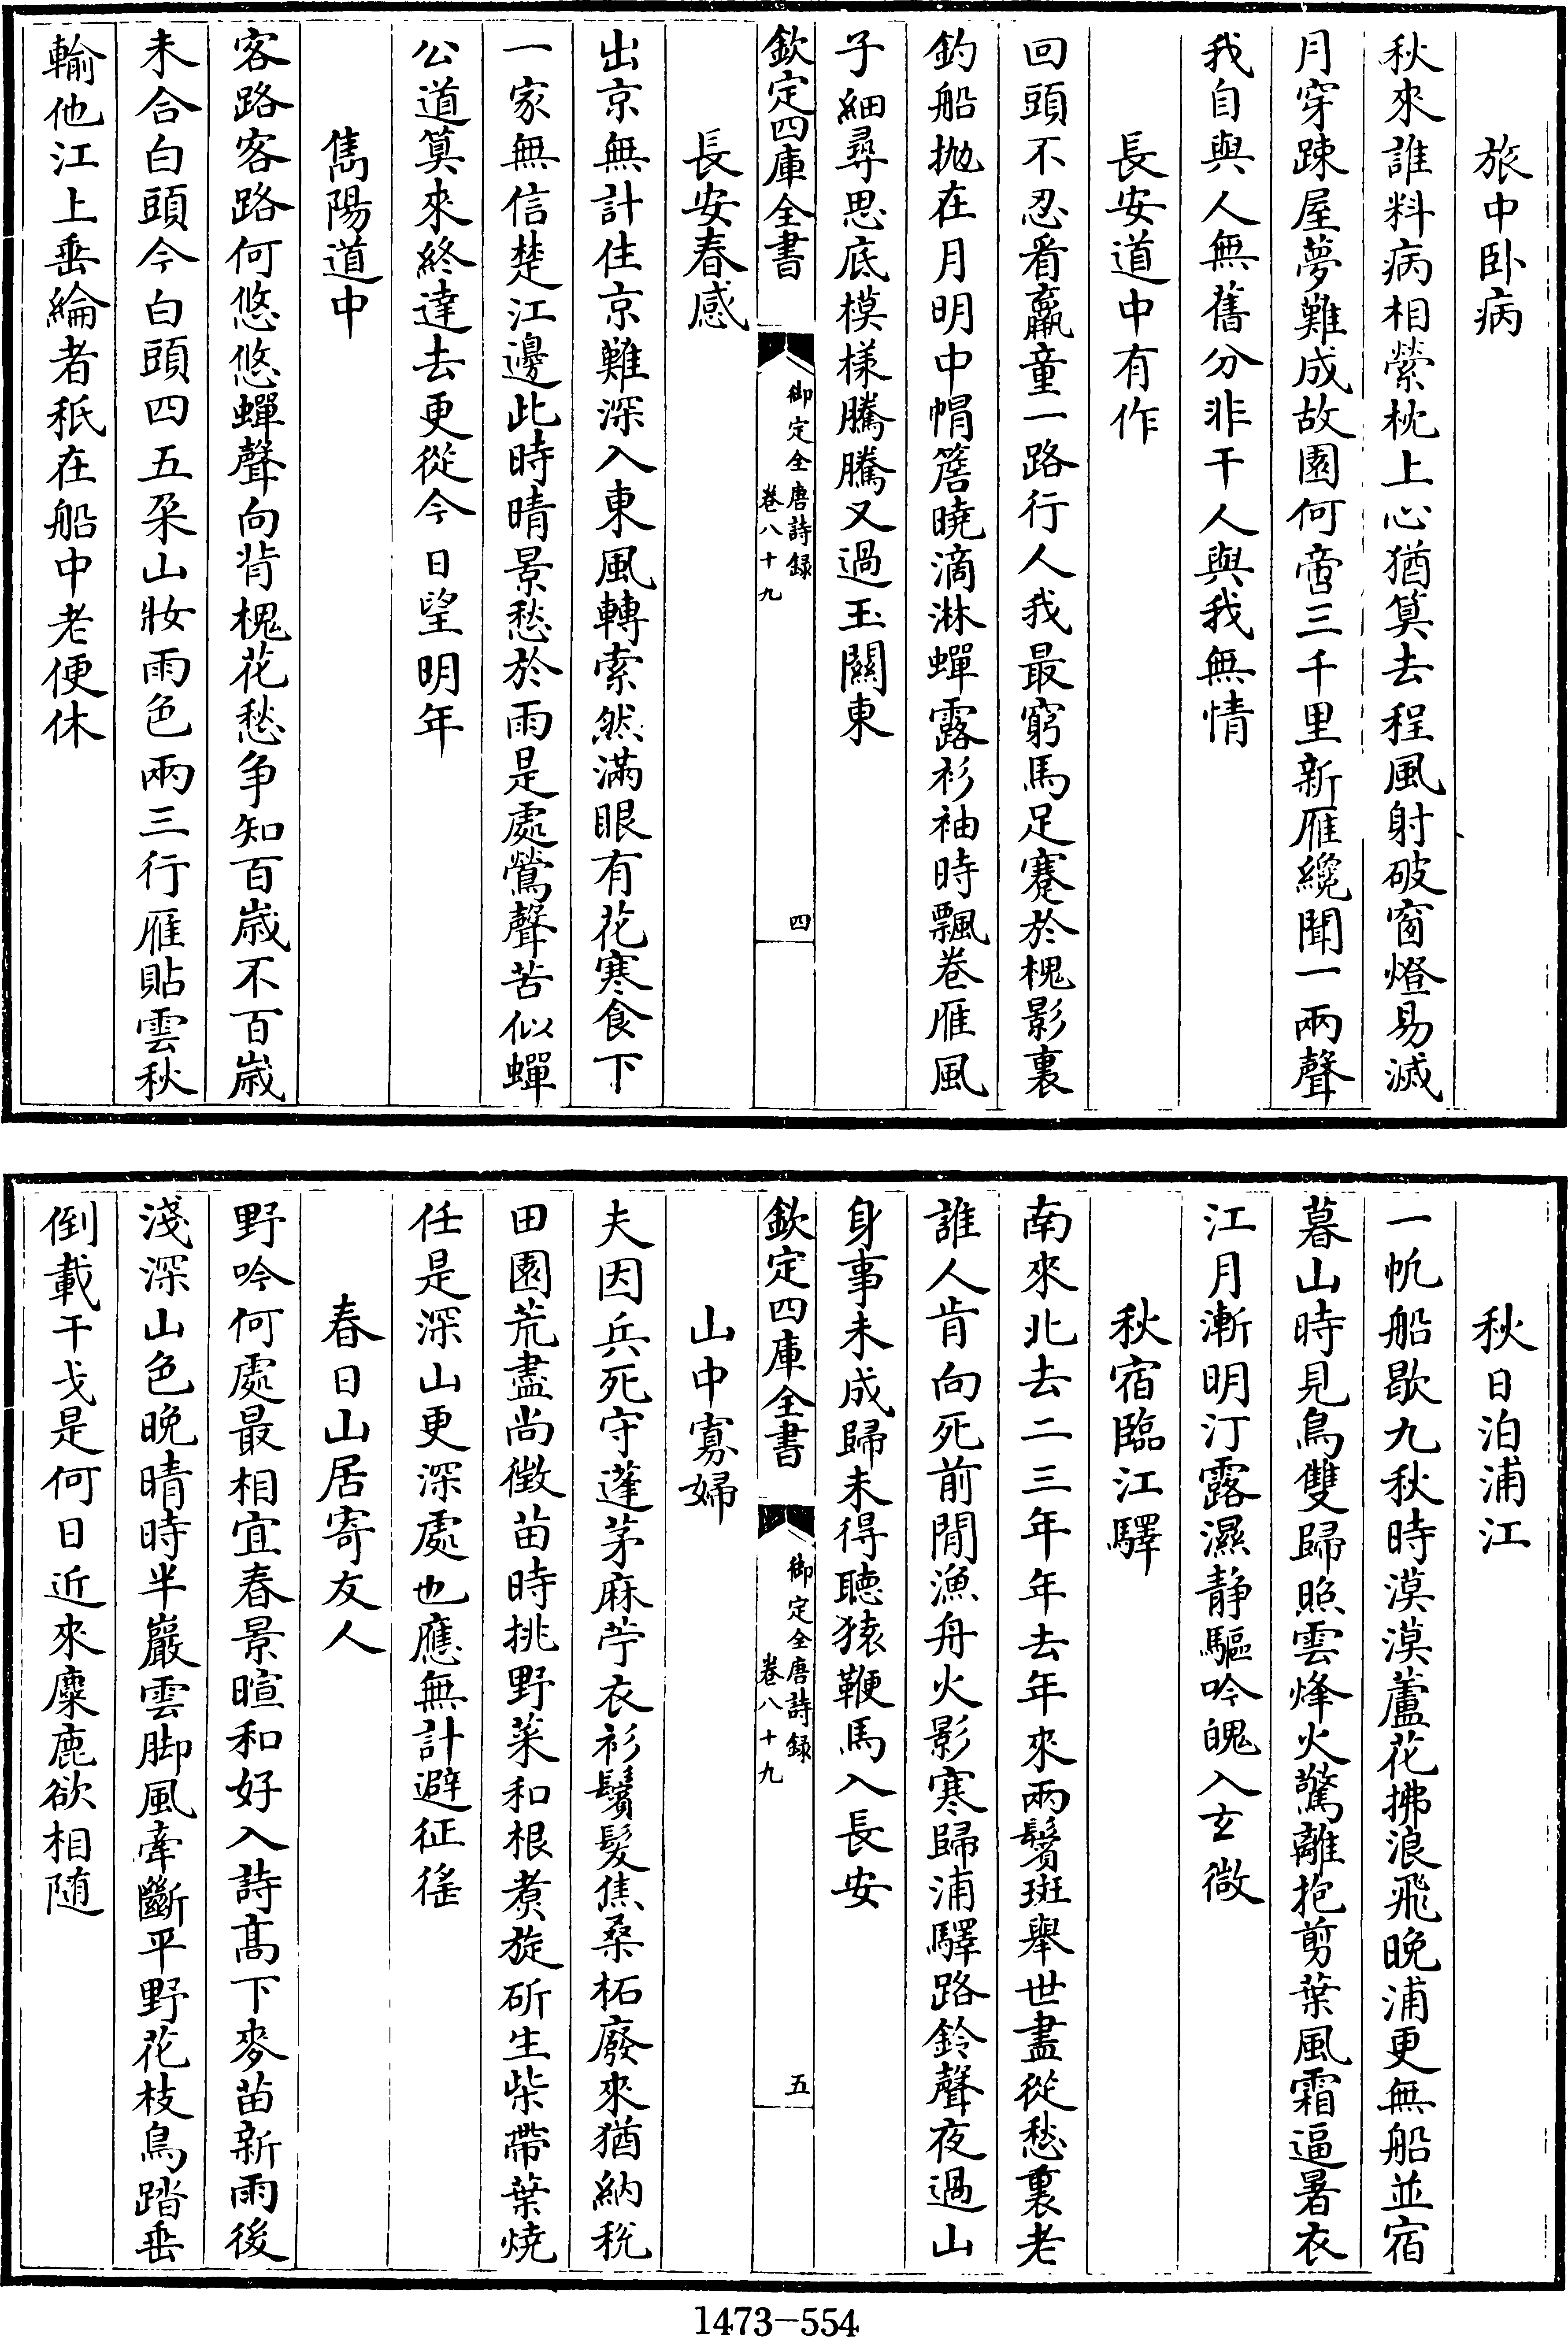 旅中卧病
秋來誰料病相縈枕上心猶算去程風射破窗燈易滅
月穿踈屋夢難成故園何啻三千里新雁纔聞一兩聲
我自與人無舊分非干人與我無情
長安道中有作
回頭不忍看羸童一路行人我最窮馬足蹇於槐影裏
釣船抛在月明中帽簷曉滴淋蟬露衫袖時飄卷雁風
子細尋思底模樣騰騰又過玉關東
欽定四庫全書
御定全唐詩録
卷八十九
四
長安春感
出京無計住京難深入東風轉索然滿眼有花寒食下
一家無信楚江邊此時晴景愁於雨是處鶯聲苦似蟬
公道算來終達去更從今日望明年
雋陽道中
客路客路何悠悠蟬聲向背槐花愁争知百歲不百歲
未合白頭今白頭四五朶山妝雨色兩三行雁貼雲秋
輸他江上垂綸者秖在船中老便休
秋日泊浦江
一帆船歇九秋時漠漠蘆花拂浪飛晚浦更無船並宿
暮山時見鳥雙歸照雲烽火驚離抱剪葉風霜逼暑衣
江月漸明汀露濕静驅吟魄入玄微
秋宿臨江驛
南來北去二三年年去年來兩鬢斑舉世盡從愁裏老
誰人肯向死前閒漁舟火影寒歸浦驛路鈴聲夜過山
身事未成歸未得聽猿鞭馬入長安
欽定四庫全書
御定全唐詩録
卷八十九
五
山中寡婦
夫因兵死守蓬茅麻苧衣衫鬢髮焦桑柘廢來猶納稅
田園荒盡尚徵苗時挑野菜和根煑旋斫生柴帶葉燒
任是深山更深處也應無計避征徭
春日山居寄友人
野吟何處最相宜春景暄和好入詩髙下麥苗新雨後
淺深山色晚晴時半巖雲脚風牽斷平野花枝鳥踏垂
倒載干戈是何日近來麋鹿欲相随
1473-554